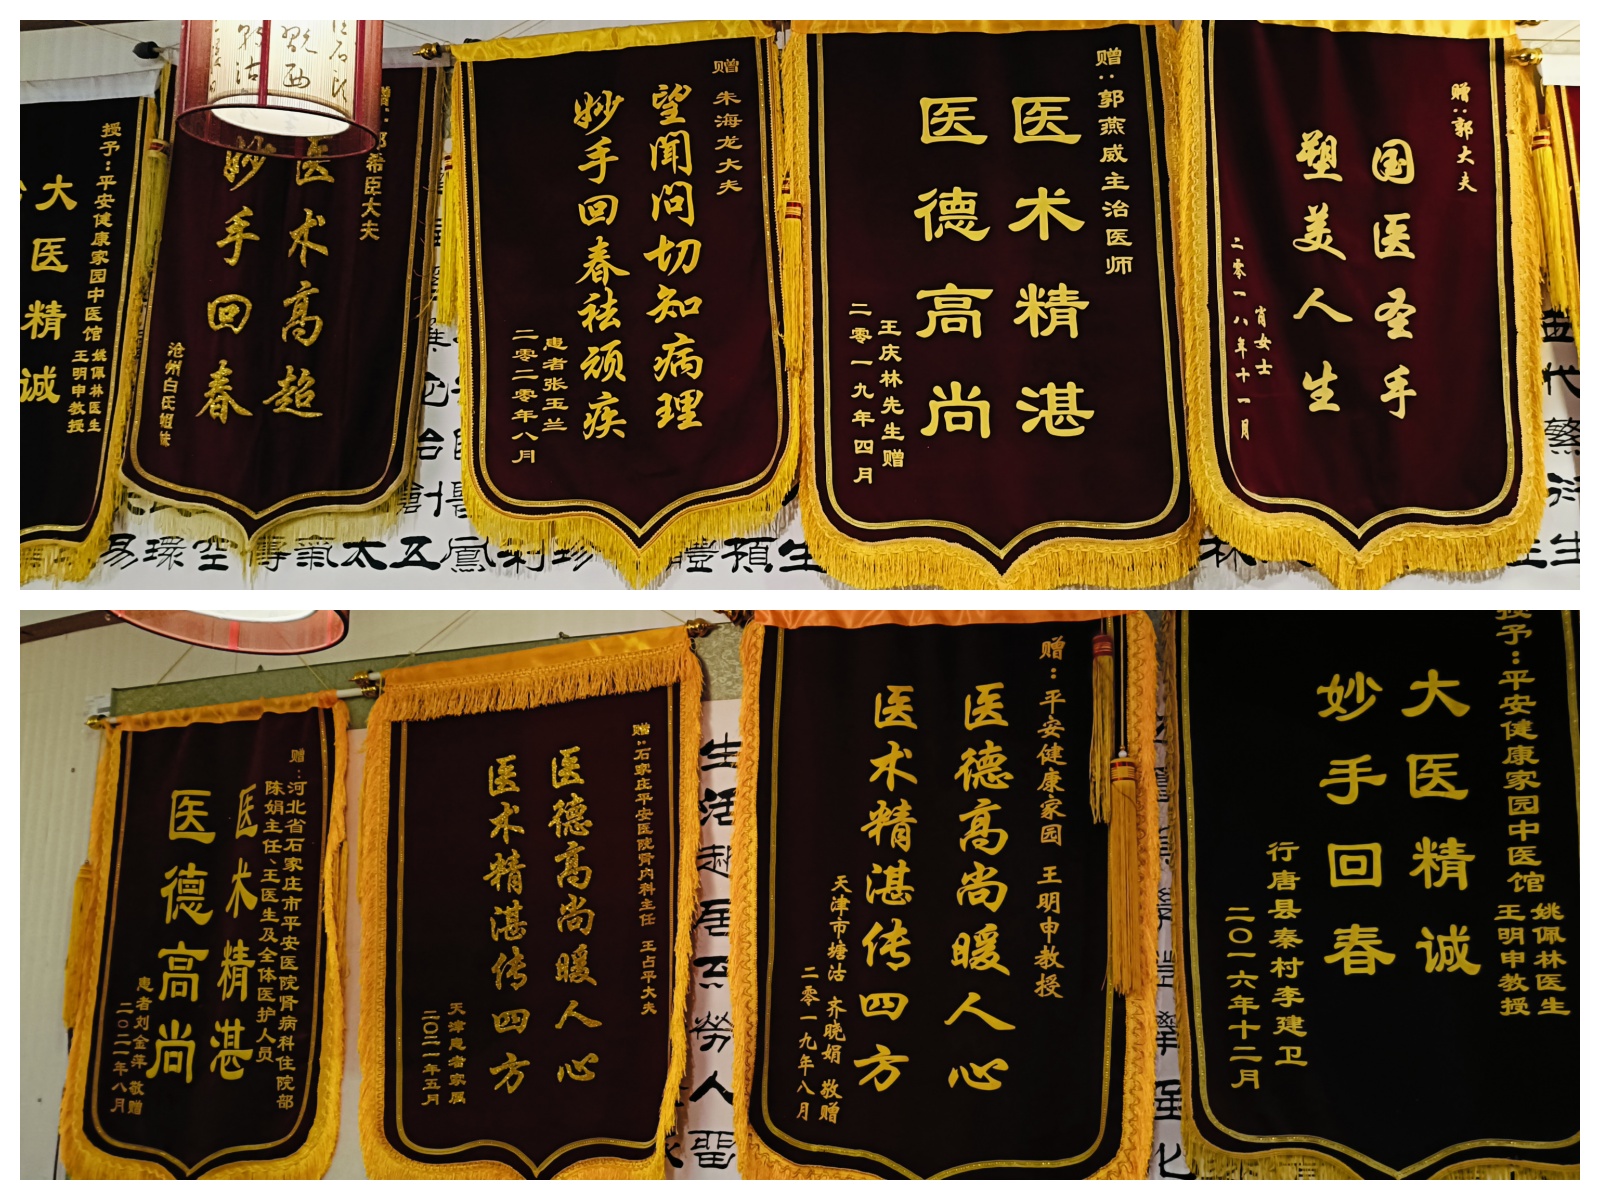 授予：平安健康家园中医馆
姚佩林医生
王明申教授
大医精诚
希臣大夫
医术高超
妙手回春
沧州白氏姐妹
赠 朱海龙大夫
望闻问切知病理
妙手回春祛顽疾
患者张玉兰
二零二零年八月
赠：郭燕威主治医师
医术精湛
医德高尚
王庆林先生赠
二零一九年四月
赠：郭大夫
国医圣手
塑美人生
肖女士
二零一八年十一月
易環空
壽氣太五鳳利珍
體預生
赠：河北省石家庄市平安医院肾病科住院部
陈娟主任、王医生及全体医护人员
医术精湛
医德高尚
患者刘金萍 敬赠
二〇二一年八月
赠：石家庄平安医院肾内科主任 王占平大夫
医德高尚暖人心
医术精湛传四方
天津患者家属
二〇二一年五月
赠：平安健康家园 王明申教授
医德高尚暖人心
医术精湛传四方
天津市塘沽 齐晓娟 敬赠
二零一九年八月
授予：平安健康家园中医馆
姚佩林医生
王明申教授
大医精诚
妙手回春
行唐县秦村李建卫
二〇一六年十二月